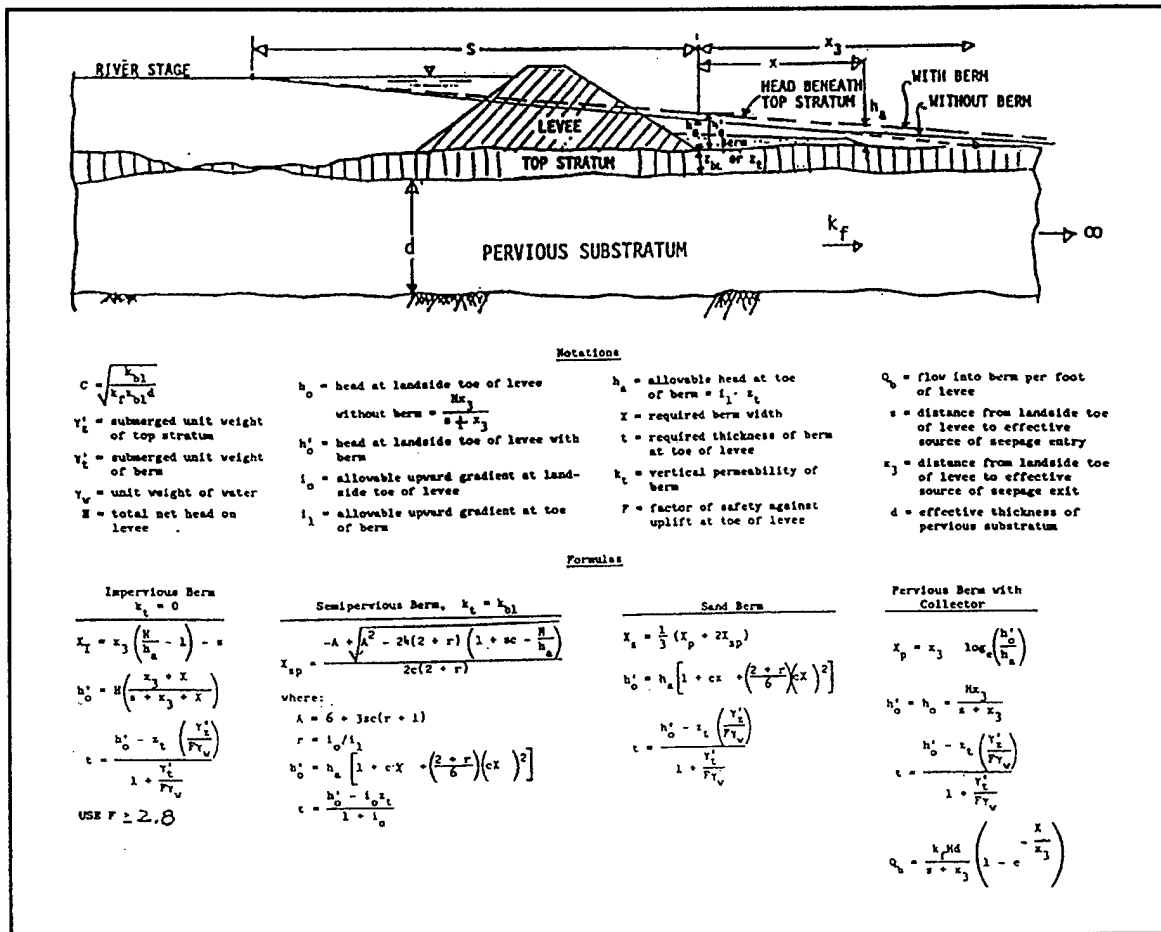 S
x₃
x
RIVER STAGE
HEAD BENEATH
TOP STRATUM
hₐ
WITH BERM
WITHOUT BERM
LEVEE
berm
TOP STRATUM
z_bL or z_t
d
k_f
∞
PERVIOUS SUBSTRATUM
Notations
C = √(k_bl / (k_f z_bl d))
γ'_z = submerged unit weight
of top stratum
γ'_t = submerged unit weight
of berm
γ_w = unit weight of water
H = total net head on
levee
h_o = head at landside toe of levee
without berm = Hx₃ / (s + x₃)
h'_o = head at landside toe of levee with
berm
i_o = allowable upward gradient at land-
side toe of levee
i₁ = allowable upward gradient at toe
of berm
hₐ = allowable head at toe
of berm = i₁ · z_t
X = required berm width
t = required thickness of berm
at toe of levee
k_t = vertical permeability of
berm
F = factor of safety against
uplift at toe of levee
Q_b = flow into berm per foot
of levee
s = distance from landside toe
of levee to effective
source of seepage entry
x₃ = distance from landside toe
of levee to effective
source of seepage exit
d = effective thickness of
pervious substratum
Formulas
Impervious Berm
k_t = 0
X_I = x₃ (H/hₐ - 1) - s
h'_o = H((x₃ + X) / (s + x₃ + X))
t = (h'_o - z_t (γ'_z / Fγ_w)) / (1 + γ'_t / Fγ_w)
USE F ≥ 2.8
Semipervious Berm, k_t = k_bl
X_sp = (-A + √(A² - 24(2 + r) (1 + sc - H/hₐ))) / 2c(2 + r)
where:
A = 6 + 3sc(r + 1)
r = i_o/i₁
h'_o = hₐ [1 + cX + ((2 + r)/6)(cX)²]
t = (h'_o - i_o z_t) / (1 + i_o)
Sand Berm
X_s = 1/3 (X_p + 2X_sp)
h'_o = hₐ[1 + cx + ((2 + r)/6)(cX)²]
t = (h'_o - z_t (γ'_z / Fγ_w)) / (1 + γ'_t / Fγ_w)
Pervious Berm with
Collector
X_p = x₃ log_e(h'_o / hₐ)
h'_o = h_o = Hx₃ / (s + x₃)
t = (h'_o - z_t (γ'_z / Fγ_w)) / (1 + γ'_t / Fγ_w)
Q_b = (k_f Hd / (s + x₃)) (1 - e^(-X/x₃))